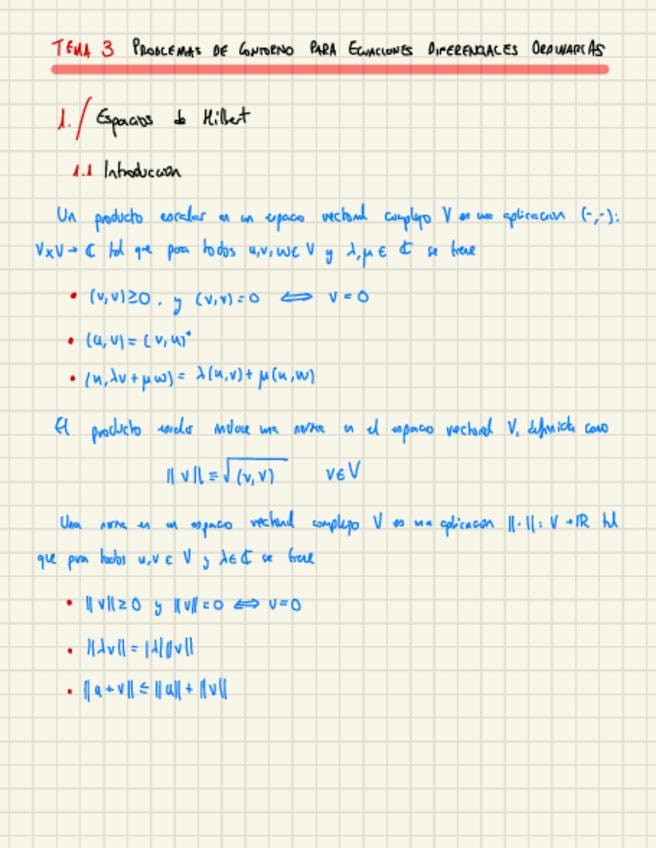 TEMA 3 PROBLEMAS DE CONTORNO PARA ECUACIONES DIFERENCIALES ORDINARIAS
1./ Espacios de Hilbert
1.1 Introducción
Un producto escalar en un espacio vectorial complejo V es una aplicación (·,·):
V×V→ ℂ tal que para todos u,v,w∈ V y λ,μ∈ ℂ se tiene
• (v,v)≥0, y (v,v)=0 ⟺ v=0
• (u,v)=(v,u)*
• (u,λv+μw)= λ(u,v)+ μ(u,w)
El producto escalar induce una norma en el espacio vectorial V, definida como
||v||≡√(v,v) v∈V
Una norma en un espacio vectorial complejo V es una aplicación ||·||: V→ℝ tal
que para todos u,v∈ V y λ∈ℂ se tiene
• ||v||≥0 y ||v||=0 ⟺ v=0
• ||λv||=|λ|||v||
• ||u+v||≤||u||+||v||